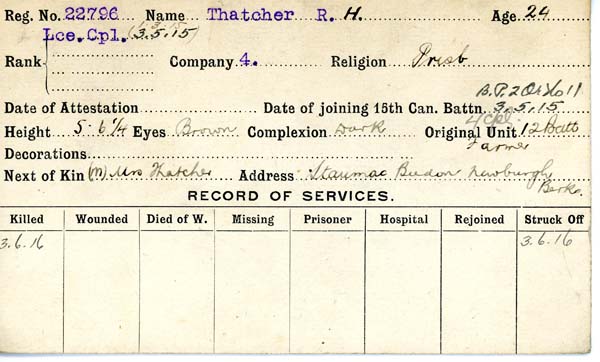 Reg. No. 22796 Name Thatcher R. H. Age 24
Lce.Cpl. (3.5.15)
Rank Company 4. Religion Presb
B.P. 2 Or
Date of Attestation Date of joining 15th Can. Battn. 3.5.15
Height 5-6 1/4 Eyes Brown Complexion Dark Original Unit 12 Batt
Farmer
Decorations
Next of Kin (M) Mrs Thatcher Address Newburgh
Berks.
RECORD OF SERVICES.
Killed Wounded Died of W. Missing Prisoner Hospital Rejoined Struck Off
3.6.16 3.6.16